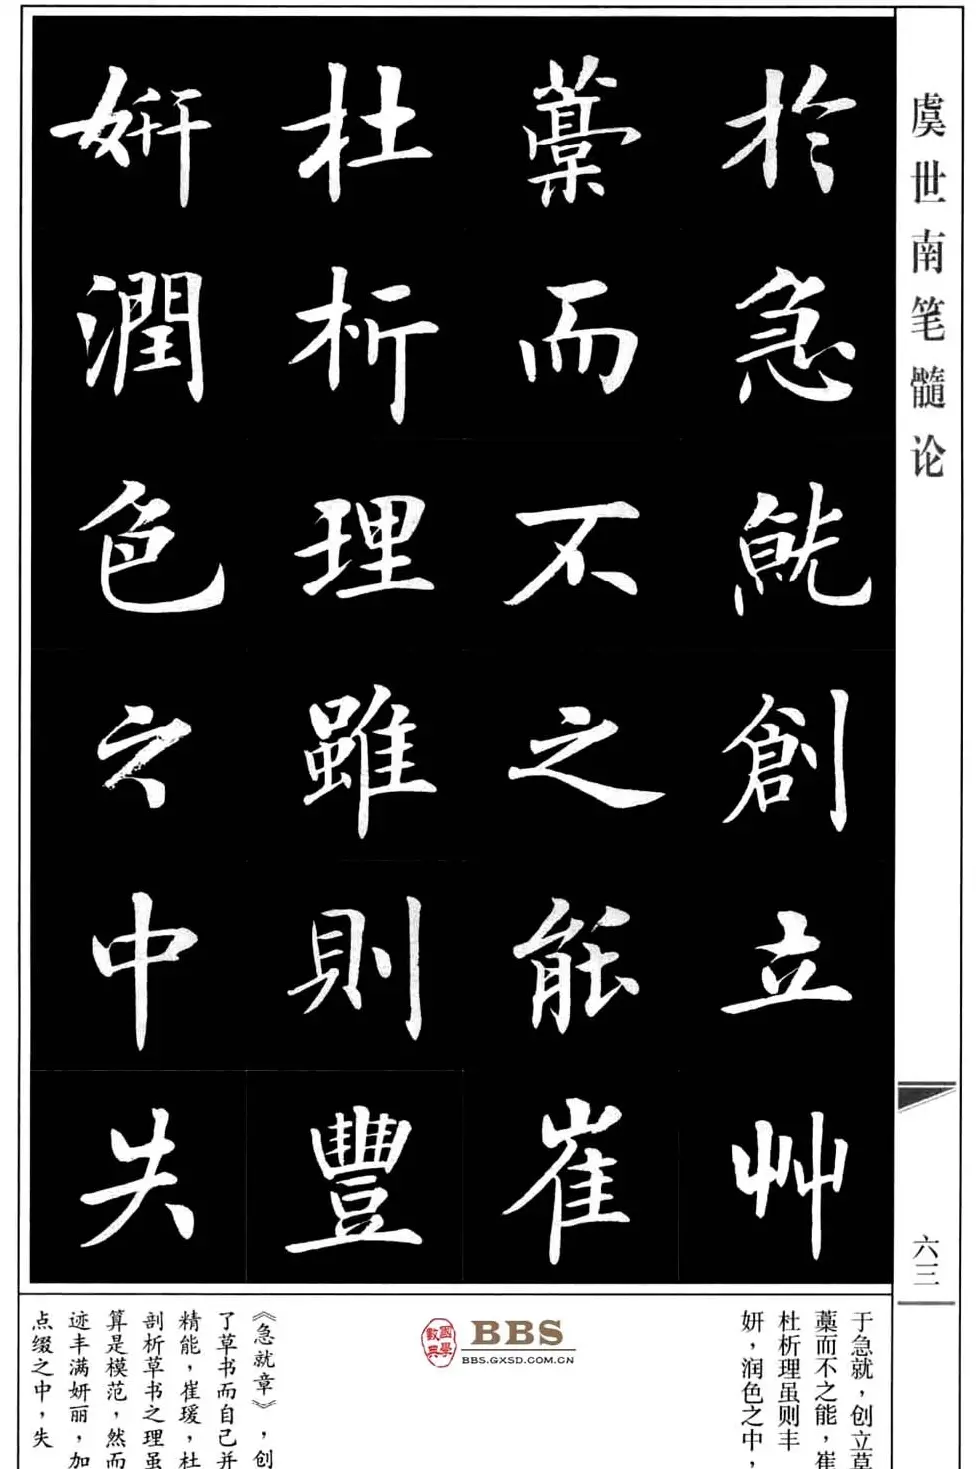 虞世南笔髓论
六三
於急就創立艸
藁而不之能崔
杜析理雖則豐
妍潤色之中失
于急就，创立草
藁而不之能，崔
杜析理虽则丰
妍，润色之中，
國學數典
BBS
BBS.GXSD.COM.CN
《急就章》，创
了草书而自己并
精能，崔瑗，杜
剖析草书之理虽
算是模范，然而
迹丰满妍丽，加
点缀之中，失